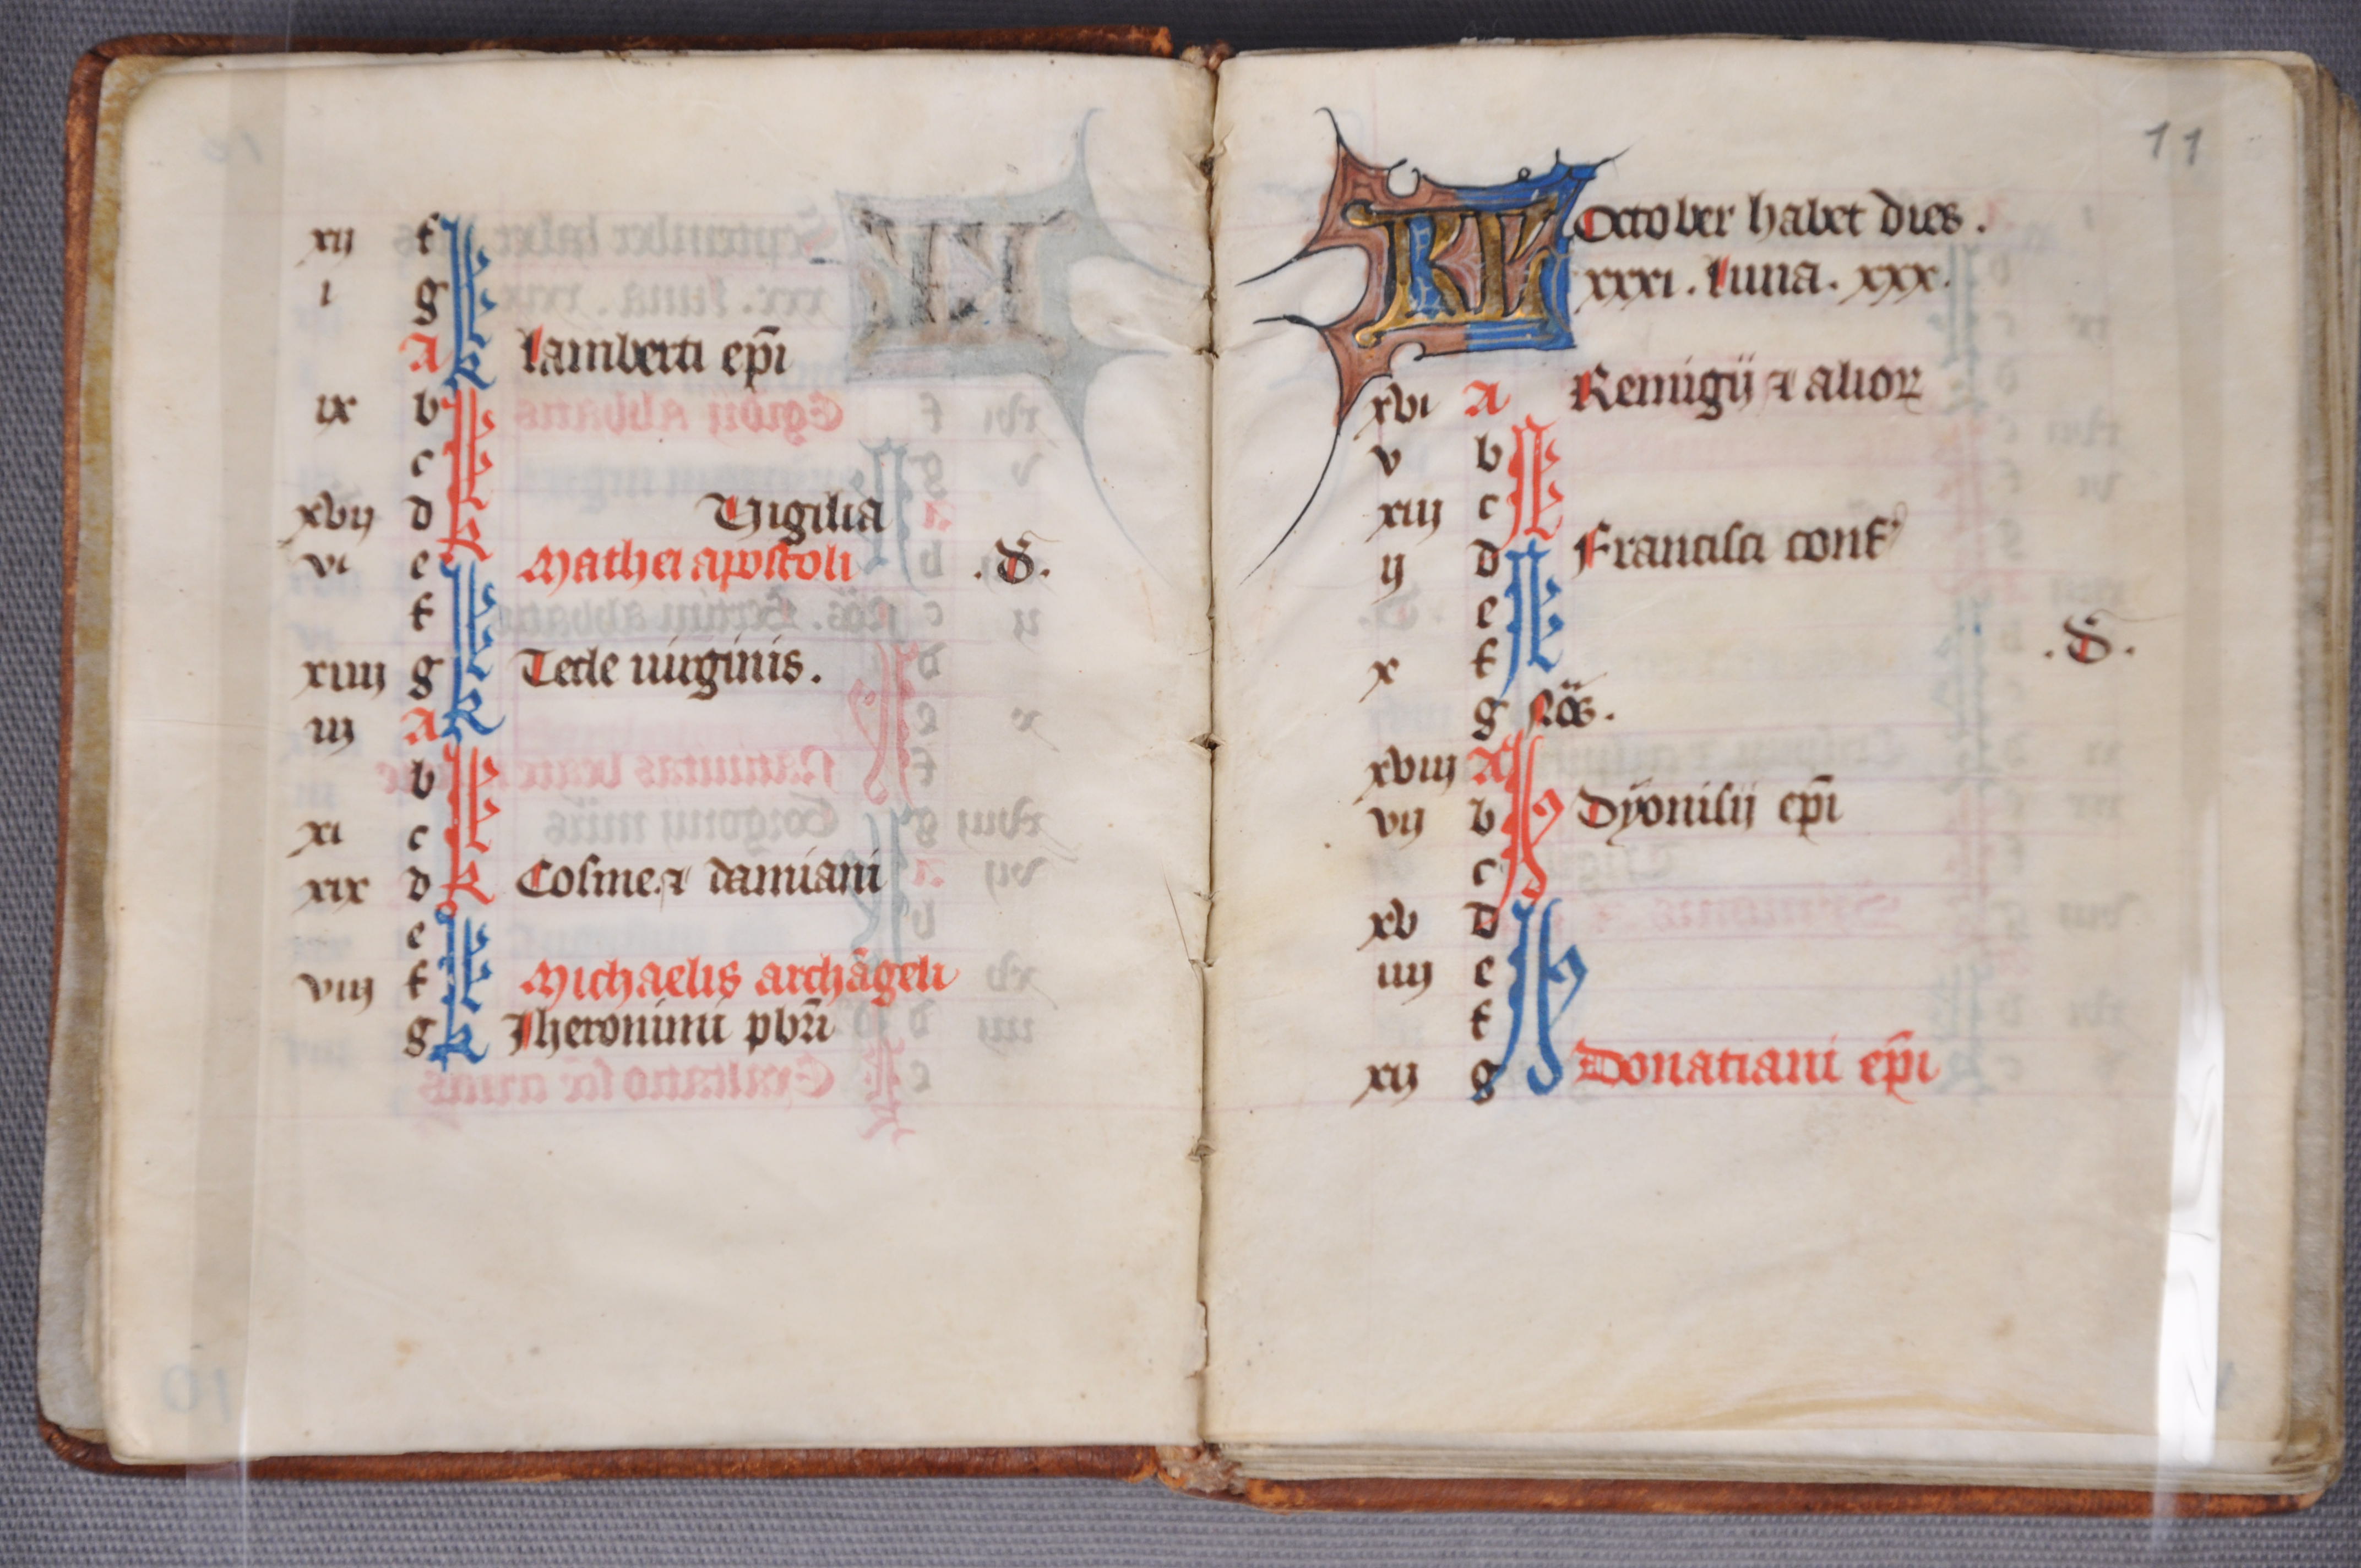 xij f kl
i g kl
A kl lamberti ep̄i
ix b kl
c kl
xvij d kl Vigilia
vi e kl Mathei apostoli .D.
f kl
xiiij g kl Tecle uirginis.
iij A kl
b kl
xi c kl
xix d kl Cosme. ⁊ damiani
e kl
viij f kl Michaelis archāgeli
g kl Jheronimi pbr̄i
11
KL October habet dies.
xxxi. luna. xxx.
xvi A Remigij ⁊ alioꝝ
v b
xiij c
ij d Francisci conf'
e
x f .D.
g Nōs.
xviij A
vij b Dyonisij ep̄i
c
xv d
iiij e
f
xij g Donatiani ep̄i